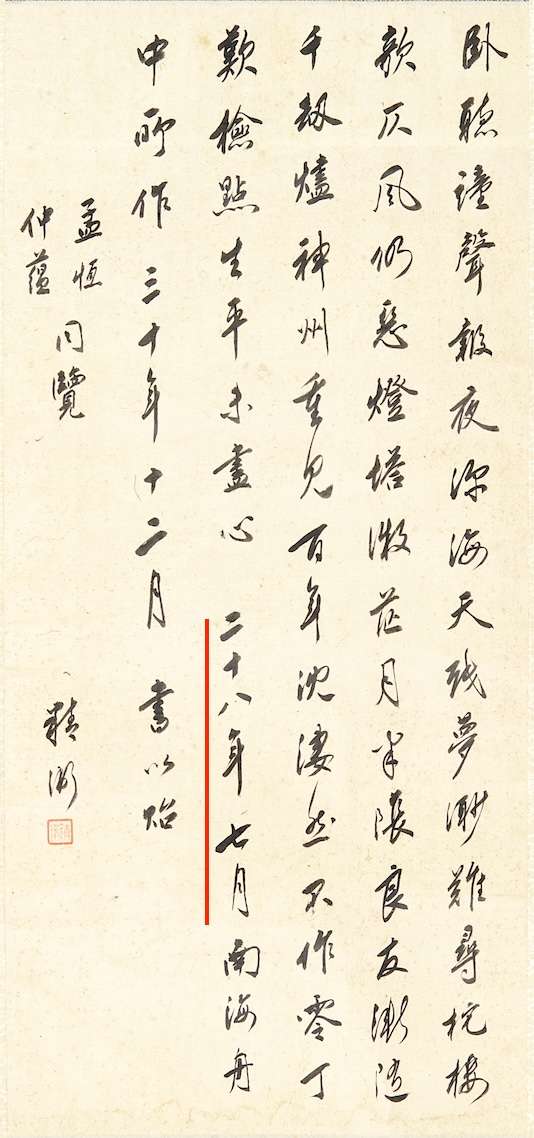 臥聽鐘聲報夜深海天殘夢渺難尋柁樓
欹仄風仍惡燈塔微茫月半陰良友漸隨
千劫燼神州重見百年沈淒然不作零丁
歎檢點生平未盡心 二十八年七月南海舟
中所作 三十年十二月 書以貽
孟恆
仲蘊
同覽
精衛